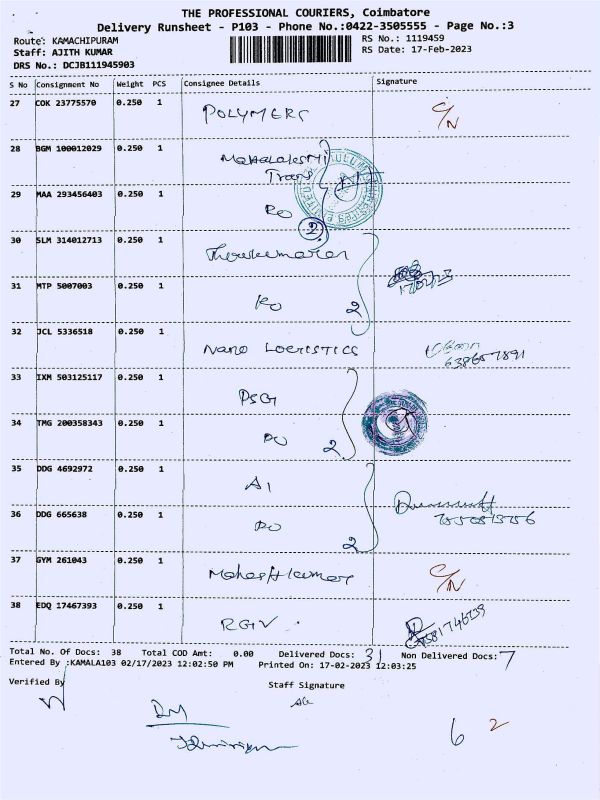 THE PROFESSIONAL COURIERS, Coimbatore
Delivery Runsheet - P103 - Phone No.:0422-3505555 - Page No.:3
Route: KAMACHIPURAM RS No.: 1119459
Staff: AJITH KUMAR RS Date: 17-Feb-2023
DRS No.: DCJB111945903
S No Consignment No Weight PCS Consignee Details Signature
27 COK 23775570 0.250 1 POLYMERS C/N
28 BGM 100012029 0.250 1 Mahalakshmi
Trans
29 MAA 293456403 0.250 1 Do
2
30 SLM 314012713 0.250 1 Thirukumaran
31 MTP 5007003 0.250 1 Do 2
32 JCL 5336518 0.250 1 Nano LOGISTICS
33 IXM 503125117 0.250 1 PSG
34 TMG 200358343 0.250 1 Do 2
35 DDG 4692972 0.250 1 A1
36 DDG 665638 0.250 1 Do 2
37 GYM 261043 0.250 1 Maheshkumar C/N
38 EDQ 17467393 0.250 1 RGV
Total No. Of Docs: 38 Total COD Amt: 0.00 Delivered Docs: 31 Non Delivered Docs: 7
Entered By :KAMALA103 02/17/2023 12:02:50 PM Printed On: 17-02-2023 12:03:25
Verified By Staff Signature
6 2